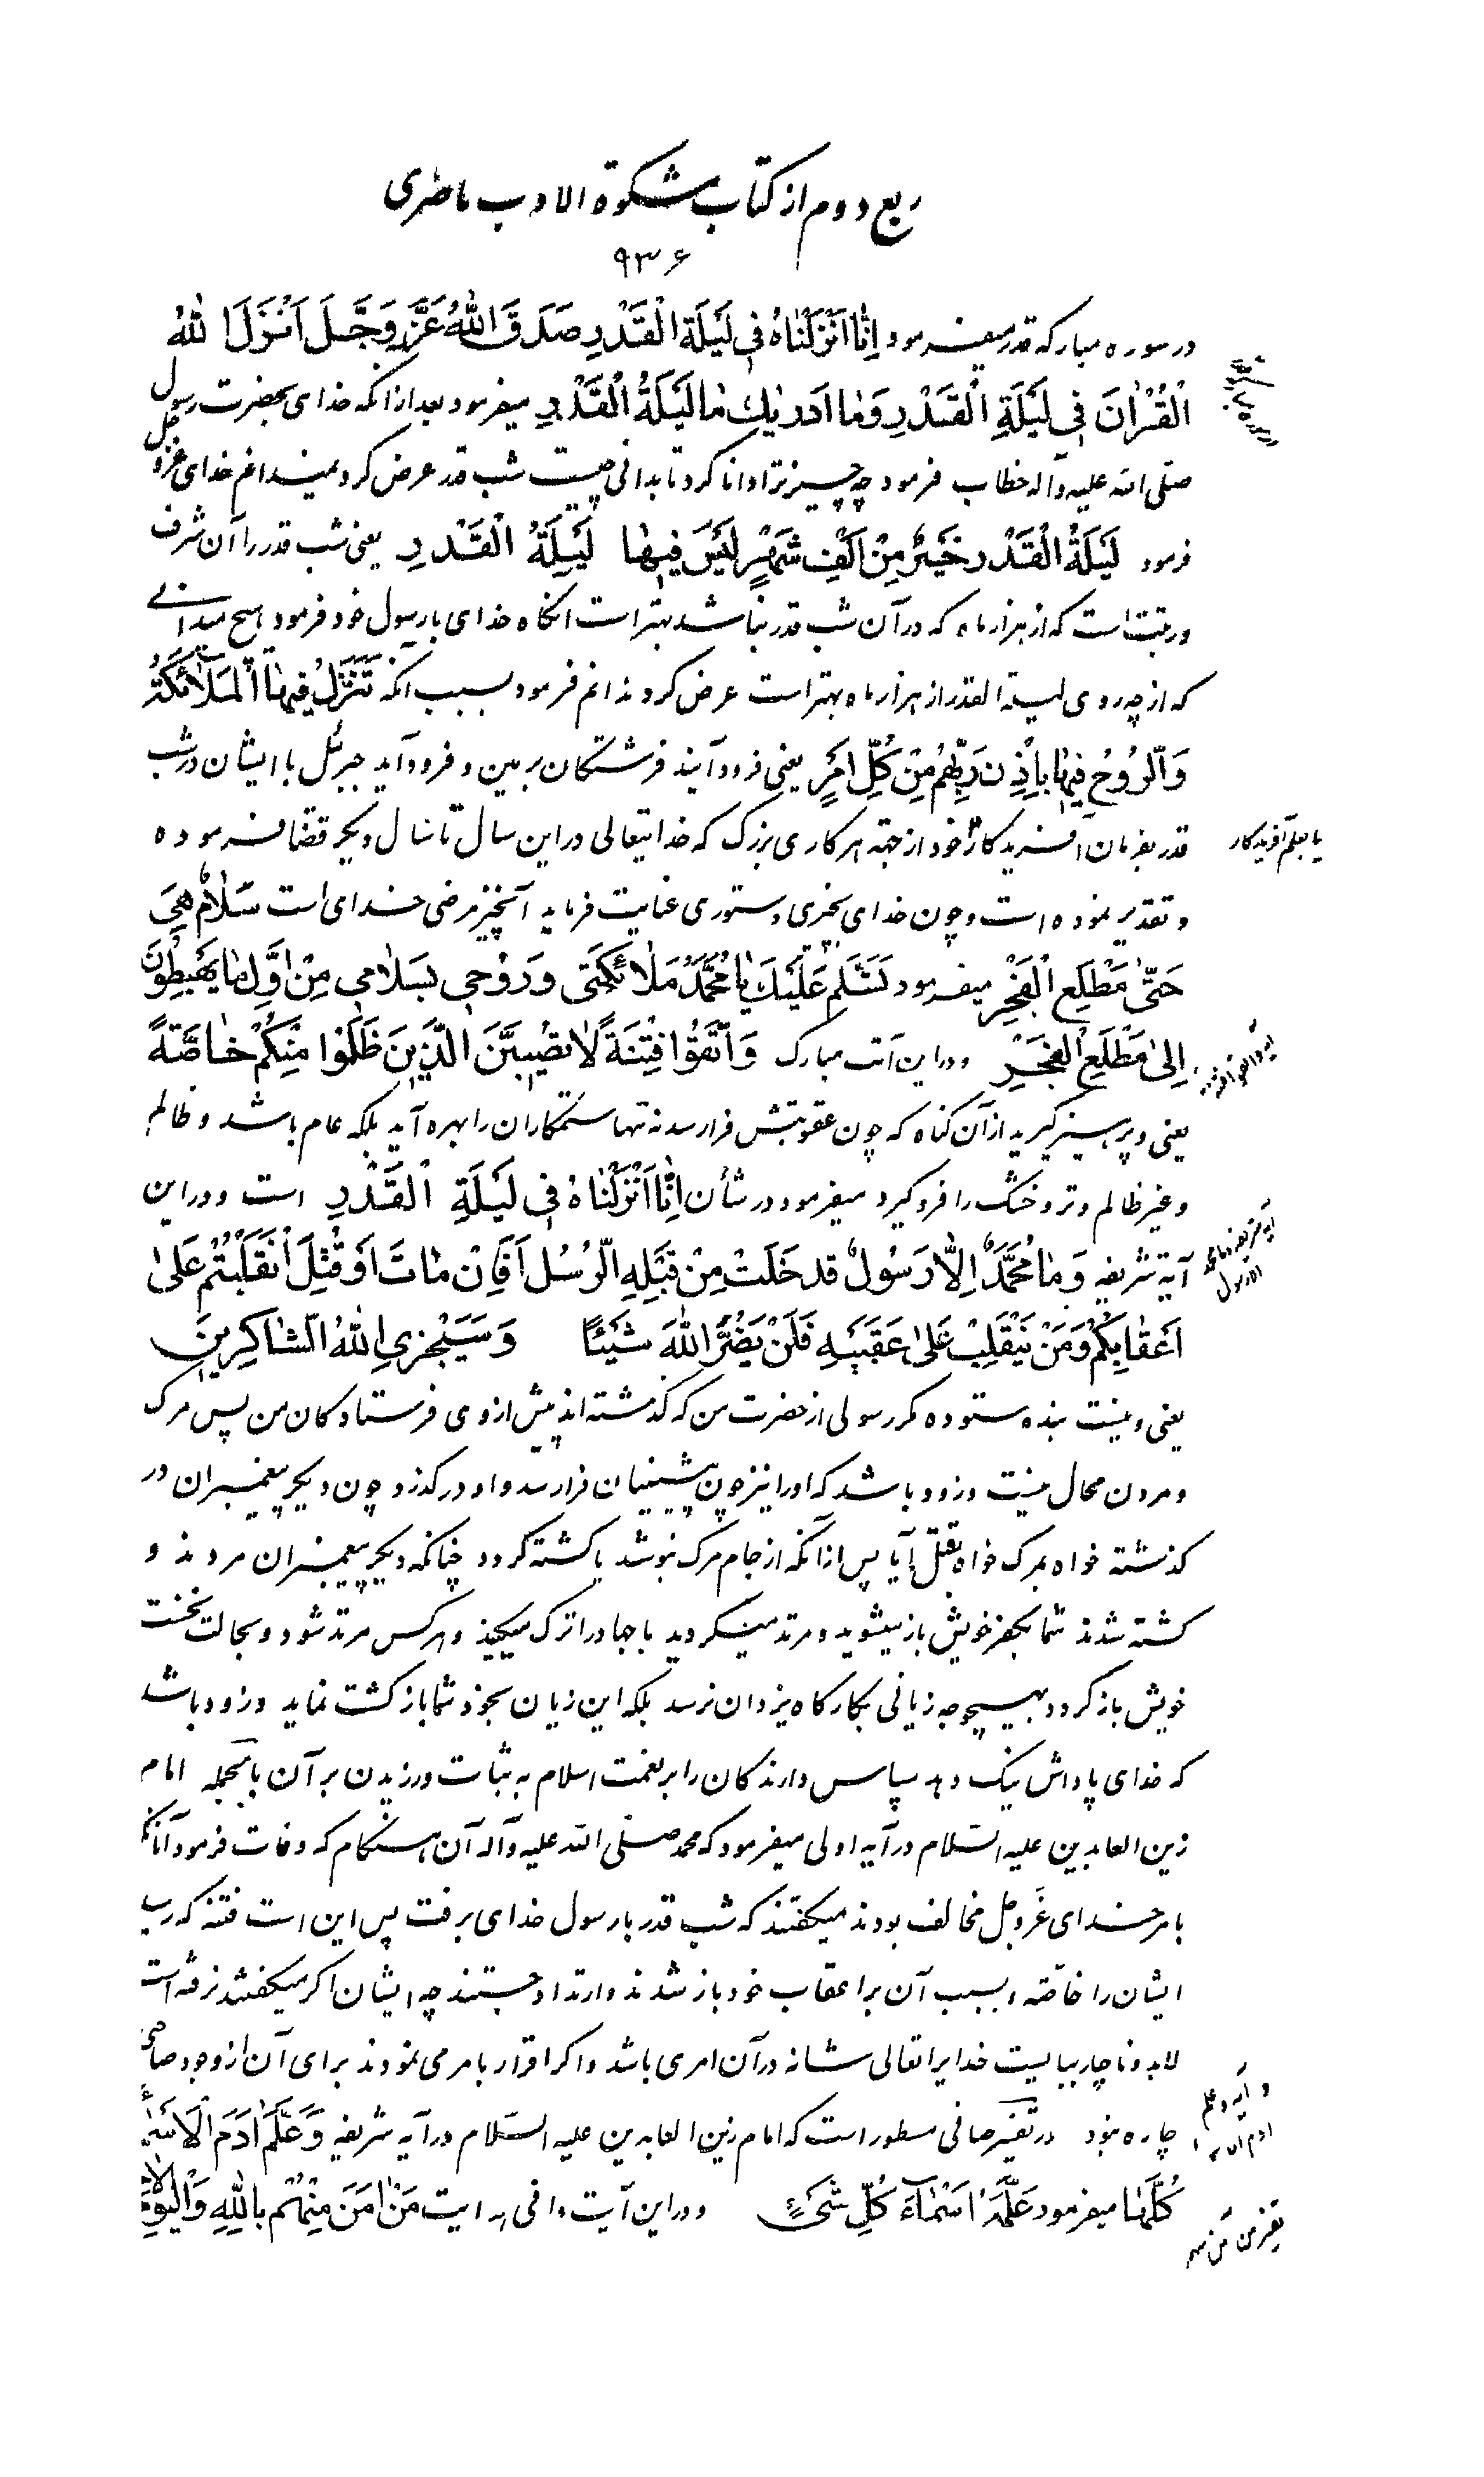 ربع دوم از کتاب مشکوة الادب ناصری
۹۳۶
در سوره مبارکه قدر میفرمود اِنّا اَنْزَلْناهُ فی لَیْلَةِ الْقَدْرِ صَدَقَ اللّهُ عَزَّ وَجَلَّ اَنْزَلَ اللّهُ
الْقُرْانَ فی لَیْلَةِ الْقَدْرِ وَما اَدْریكَ ما لَیْلَةُ الْقَدْرِ میفرمود بعد از آنکه خدای بحضرت رسول
صلّی الله علیه وآله خطاب فرمود چه چیز ترا دانا کرد تا بدانی چیست شب قدر عرض کرد نمیدانم خدای عزّوجل
فرمود لَیْلَةُ الْقَدْرِ خَیْرٌ مِنْ اَلْفِ شَهْرٍ لَیْسَ فیها لَیْلَةُ الْقَدْرِ یعنی شب قدر را آن شرف
ورتبت است که از هزار ماه که در آن شب قدر نباشد بهتر است آنگاه خدای با رسول خود فرمود هیچ میدانی
که از چه روی لیلة القدر از هزار ماه بهتر است عرض کرد ندانم فرمود بسبب آنکه تَنَزَّلُ فیهَا الْمَلآئِکَةُ
وَالرُّوحُ فیها بِاِذْنِ رَبِّهِمْ مِنْ کُلِّ اَمْرٍ یعنی فرود آیند فرشتگان بزمین و فرود آید جبرئیل با ایشان در شب
قدر بفرمان آفریدگار خود از جهة هر کاری بزرگ که خدایتعالی در این سال تا سال دیگر قضا فرموده
یا بعلم آفریدگار
و تقدیر نموده است و چون خدای بچیزی دستوری عنایت فرماید آنچیز مرضی خدای است سَلامٌ هِیَ
حَتّی مَطْلَعِ الْفَجْرِ میفرمود تُسَلِّمُ عَلَیْكَ یا مُحَمَّدُ مَلائِکَتی وَ رُوحی بِسَلامی مِنْ اَوَّلِ ما یَهْبِطُونَ
اِلی مَطْلَعِ الْفَجْرِ و در این آیت مبارک وَاتَّقُوا فِتْنَةً لا تُصیبَنَّ الَّذینَ ظَلَمُوا مِنْکُمْ خاصَّةً
یعنی و پرهیز گیرید از آن گناه که چون عقوبتش فرا رسد نه تنها ستمکاران را بهره آید بلکه عام باشد و ظالم
و غیر ظالم و تر و خشک را فرو گیرد میفرمود در شأن اِنّا اَنْزَلْناهُ فی لَیْلَةِ الْقَدْرِ است و در این
آیه شریفه وَما مُحَمَّدٌ اِلّا رَسُولٌ قَدْ خَلَتْ مِنْ قَبْلِهِ الرُّسُلُ اَفَاِنْ ماتَ اَوْ قُتِلَ انْقَلَبْتُمْ عَلی
اَعْقابِکُمْ وَمَنْ یَنْقَلِبْ عَلی عَقِبَیْهِ فَلَنْ یَضُرَّ اللّهَ شَیْئًا وَسَیَجْزِی اللّهُ الشّاکِرینَ
یعنی و نیست بنده ستوده مگر رسولی از حضرت من که گذشته اند پیش از وی فرستادگان من پس مرگ
و مردن محال نیست و زود باشد که او را نیز چون پیشینیان فرا رسد و او در گذرد چون دیگر پیغمبران در
گذشته خواه بمرگ خواه بقتل آیا پس از آنکه از جام مرگ بنوشد یا کشته گردد چنانکه دیگر پیغمبران مردند و
کشته شدند شما بکفر خویش باز میشوید و مرتد میگردید یا جهاد را ترک میکنید و هر کس مرتد شود و بحالت نخست
خویش باز گردد بهیچوجه زیانی بکارگاه یزدان نرسد بلکه این زیان بخود شما بازگشت نماید و زود باشد
که خدای پاداش نیک دهد سپاس دارندگان را بر نعمت اسلام به ثبات ورزیدن بر آن بالجمله امام
زین العابدین علیه السّلام در آیه اولی میفرمود که محمد صلّی الله علیه وآله آن هنگام که وفات فرمود آنانکه
بامر خدای عَزَّوجل مخالف بودند میگفتند که شب قدر با رسول خدای برفت پس این است فتنه که رسید
ایشان را خاصّه و بسبب آن بر اعقاب خود باز شدند و ارتداد جستند چه ایشان اگر میگفتند نرفته است
لابد و ناچار ببایست خدایرا تعالی شانه در آن امری باشد و اگر اقرار بامر می نمودند برای آن از وجود صاحب
چاره نبود در تفسیر صافی مسطور است که امام زین العابدین علیه السّلام در آیه شریفه وَعَلَّمَ ادَمَ الْاَسْمآءَ
و آیه وعلم
ادم الاسماء
کُلَّها میفرمود عَلَّمَهُ اَسْمآءَ کُلِّ شَیْءٍ و در این آیت وافی هدایت مَنْ امَنَ مِنْهُمْ بِاللّهِ وَالْیَوْمِ الاخِرِ